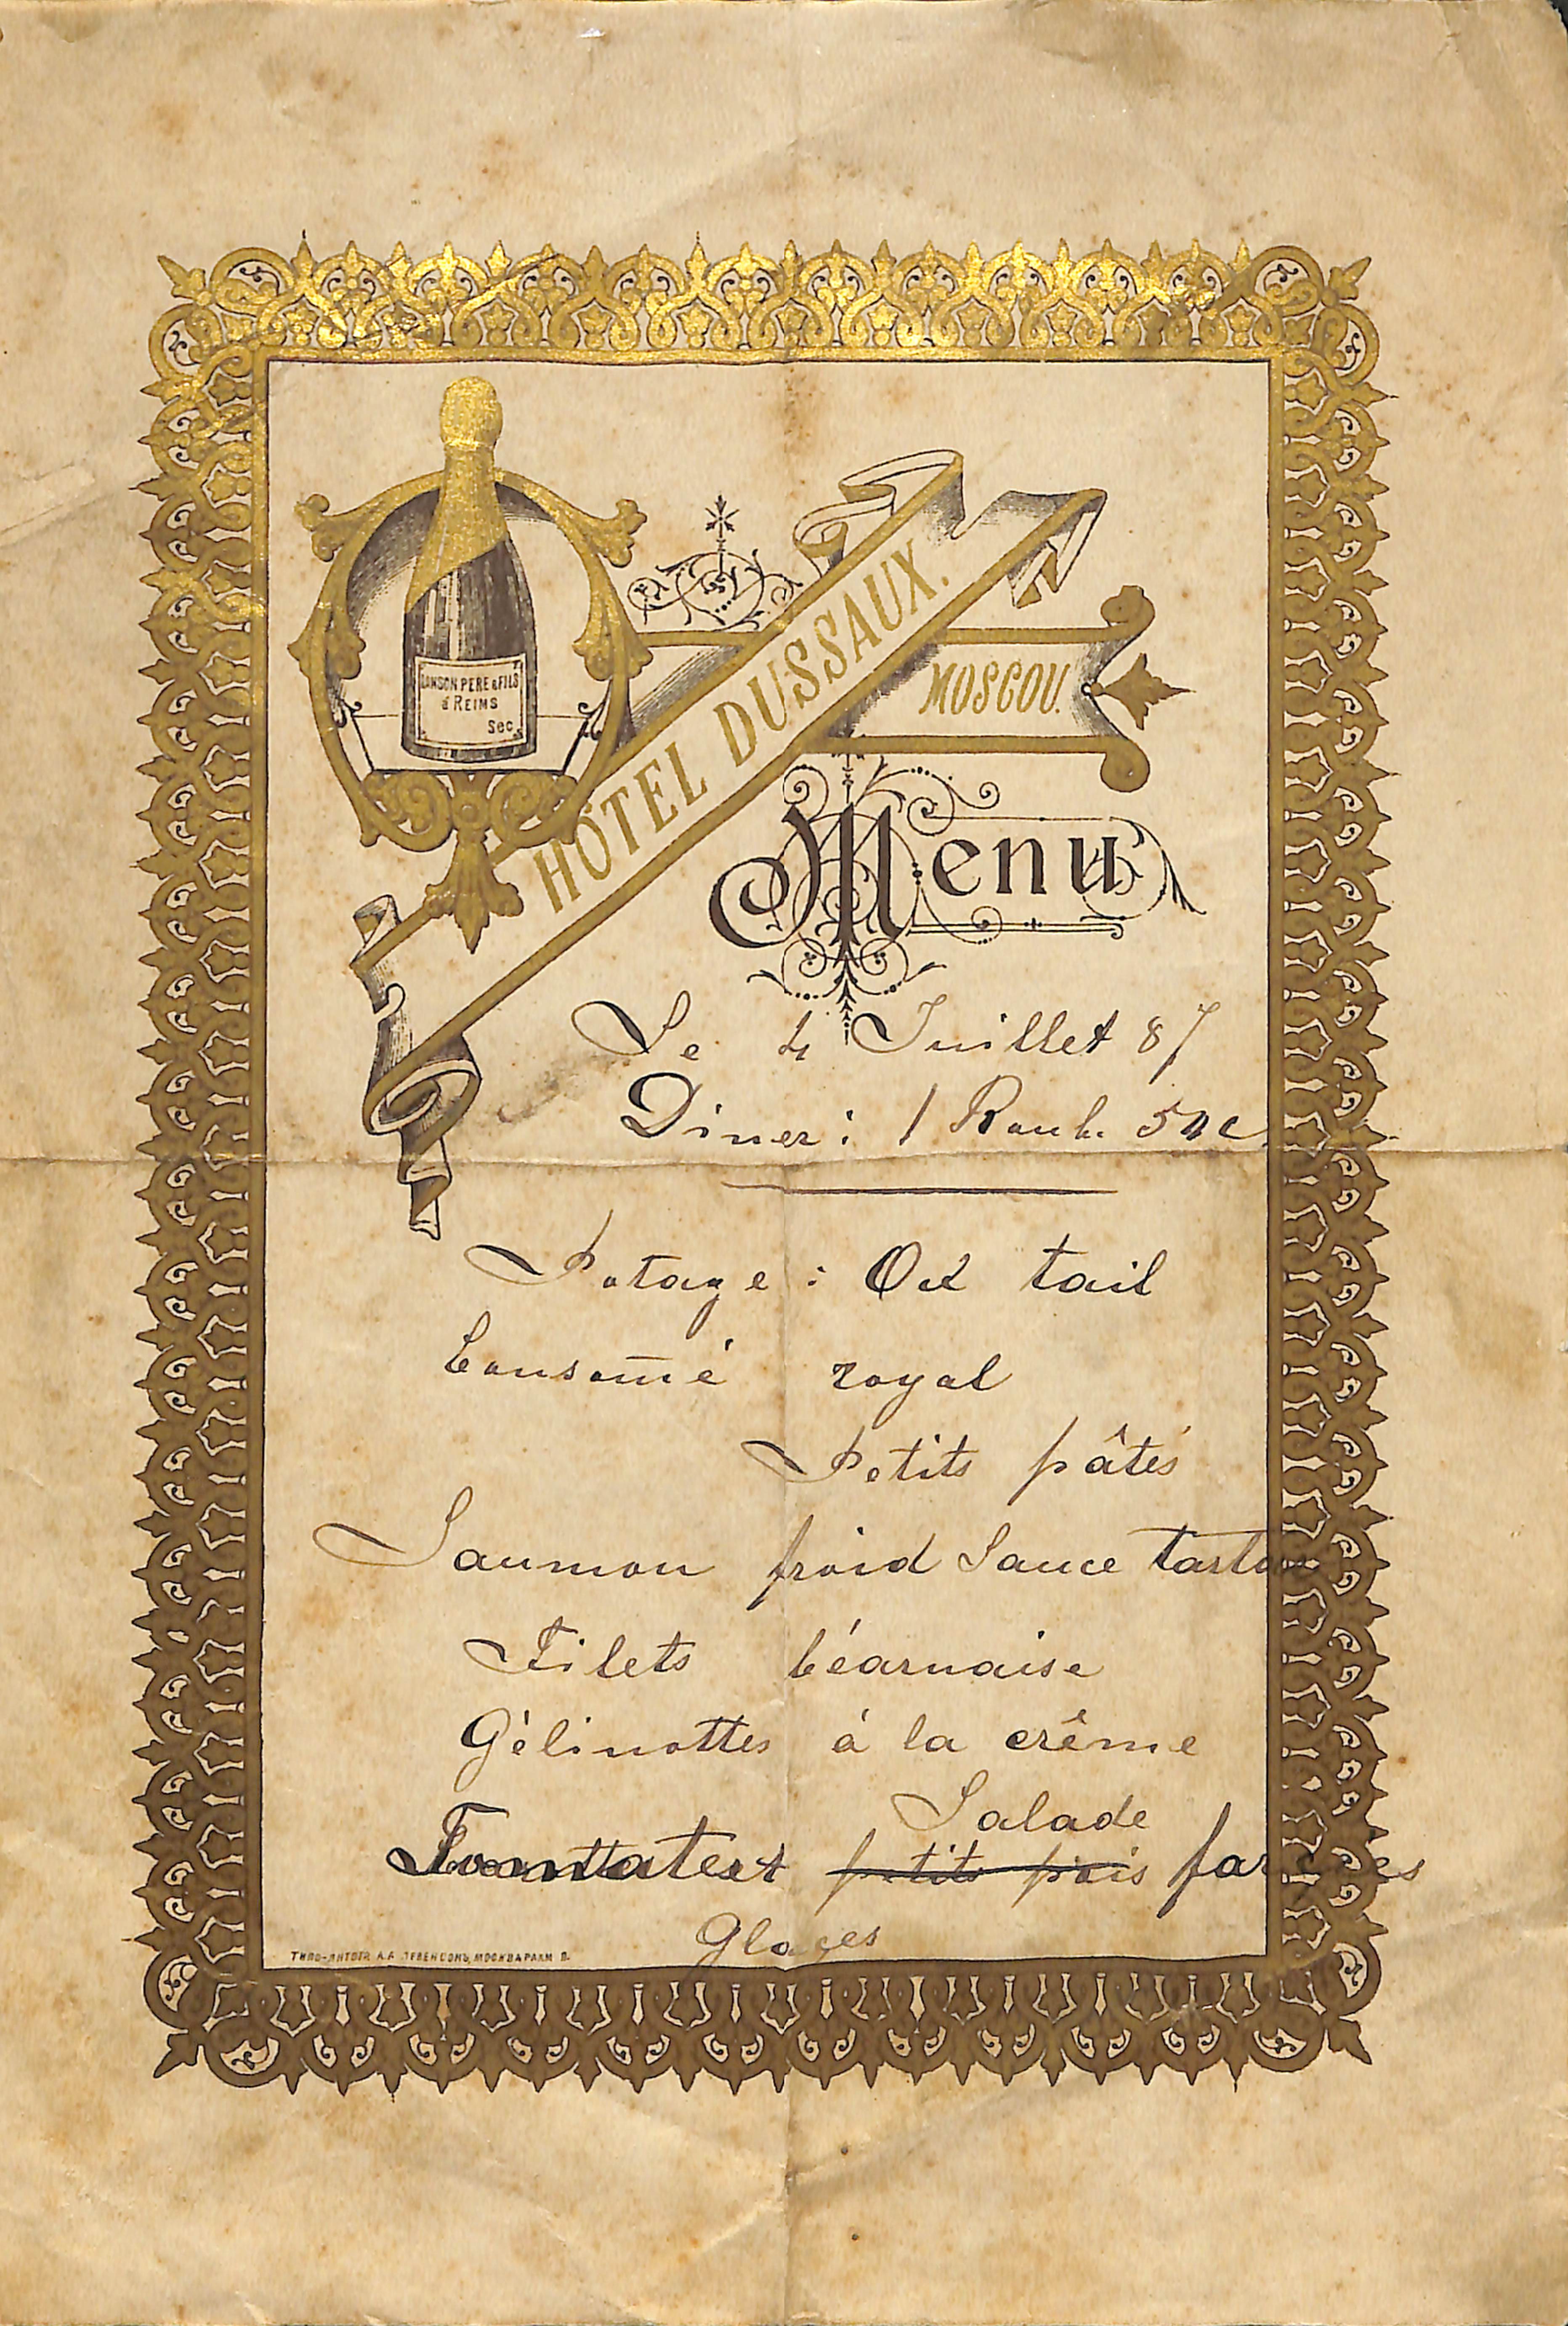 LANSON PERE & FILS
à REIMS
Sec.
HÔTEL DUSSAUX.
MOSCOU.
Menu
Le 4 Juillet 87
Diner: 1 Roub. 50 c
Potage: Ox tail
Consom̄é royal
Petits pâtés
Saumon froid Sauce
Filets béarnaise
Gélinottes à la crême
Salade
petits pois
Glaces